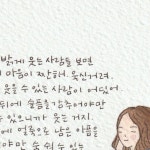 밝게 웃는 사람들 보면
마음이 짠하다. 욱신거려.
웃을 수 있는 사람이 어딨어
뒤에 슬픔을 감추어야만
수 있으니까 웃는 거지.
에 억죽으로 남은 아픔을
야만 숨 쉬 수 있